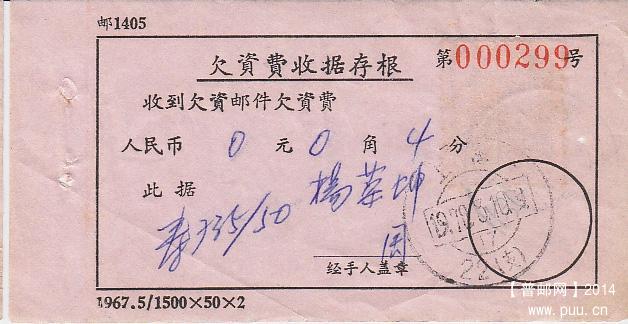 邮1405
欠資費收据存根
第000299号
收到欠資邮件欠資費
人民币 0 元 0 角 4 分
此据
楊菜坤
735/50
周
经手人盖章
22(支)
1967.5/1500×50×2
【普邮网】2014
www.puu.cn